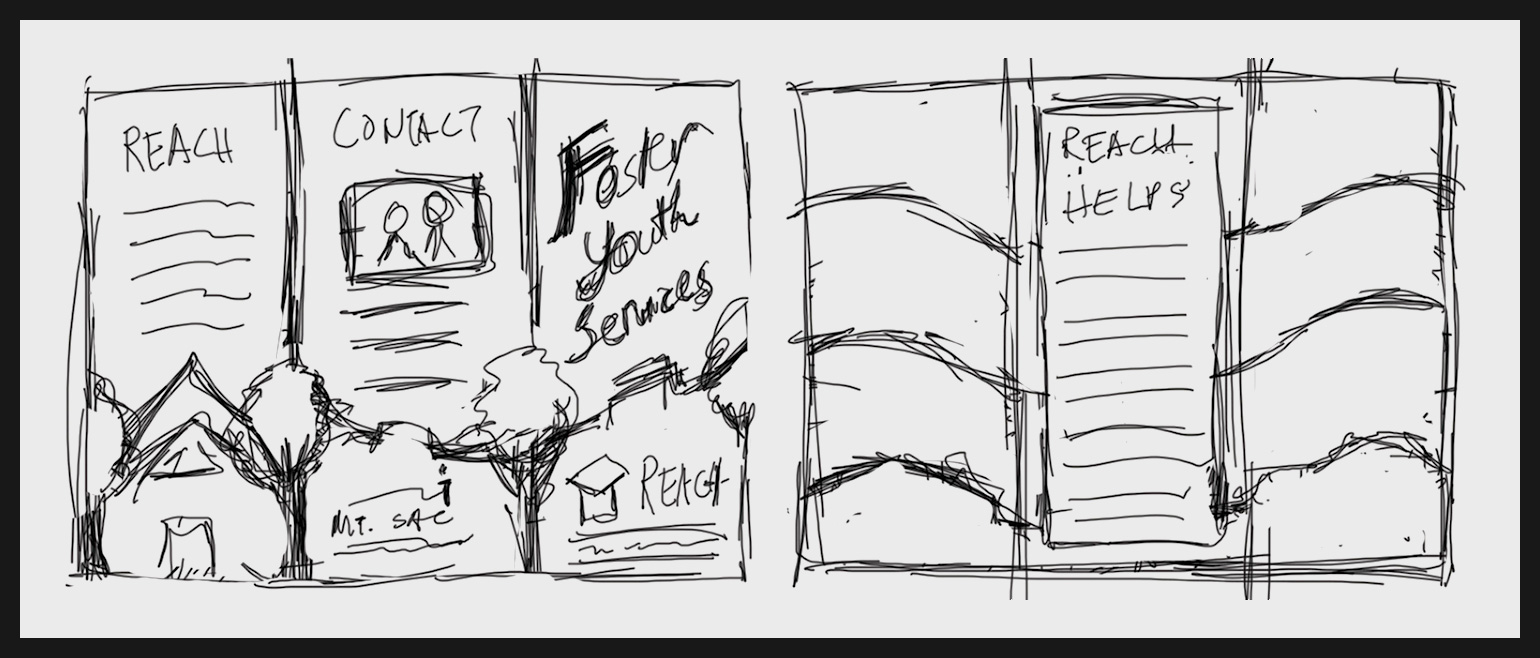 REACH
CONTACT
MT. SAC
Foster
Youth
Services
REACH
REACH
HELPS